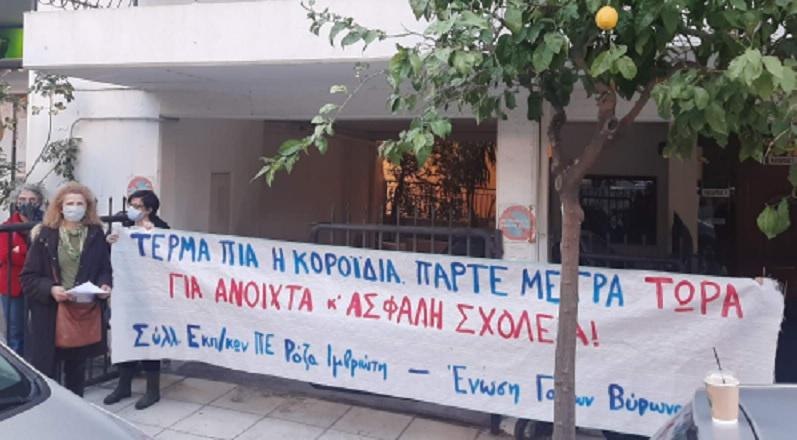 ΤΕΡΜΑ ΠΙΑ Η ΚΟΡΟΪΔΙΑ. ΠΑΡΤΕ ΜΕΤΡΑ ΤΩΡΑ
ΓΙΑ ΑΝΟΙΧΤΑ κ' ΑΣΦΑΛΗ ΣΧΟΛΕΙΑ!
Σύλλ Εκπ/κων ΠΕ Ρόζα Ιμβριώτη – Ένωση Γονέων Βύρωνα